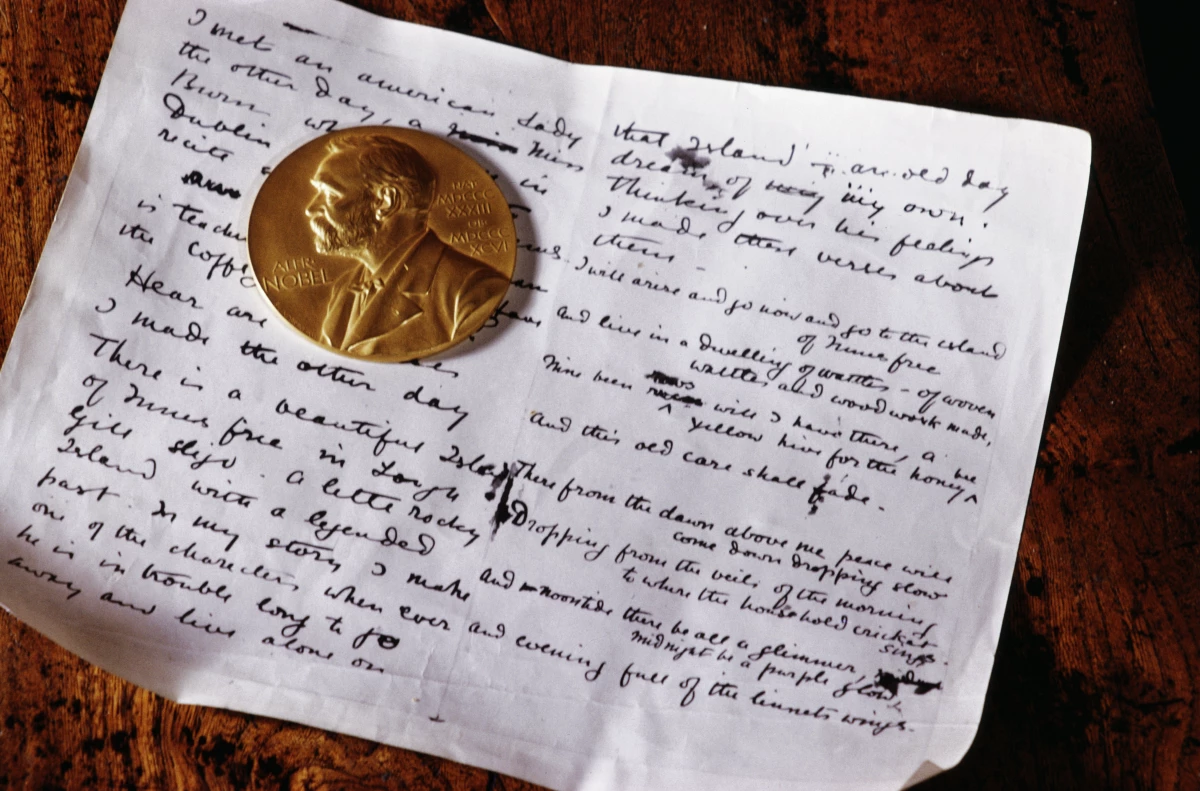 I met an american Lady
the other Day, a Miss
Burn
Dublin
recite
in
is teach
the coffe
Hear are
I made the other day
There is a beautiful Island
of Innis free in Lough
Gill sligo. A little rocky
Island with a legended
past. In my story I make
one of the characters when ever
he is in trouble long to go
away and live alone on
ALFR·
NOBEL
NAT·
MDCCC
XXXIII
OB·
MDCCC
XCVI
that Island – an old day
dream of my own.
Thinking over his feelings
I made these verses about
them –
I will arise and go now and go to the island
of Innis free
and live in a dwelling of wattles – of woven
wattles and wood work made,
Nine been rows will I have there, a
yellow hive for the honey
And this old care shall fade.
There from the dawn above me peace will
come down dropping slow
Dropping from the veils of the morning
to where the household cricket
sings.
And noontide there be all a glimmer,
midnight be a purple glow
and evening full of the linnets wings.